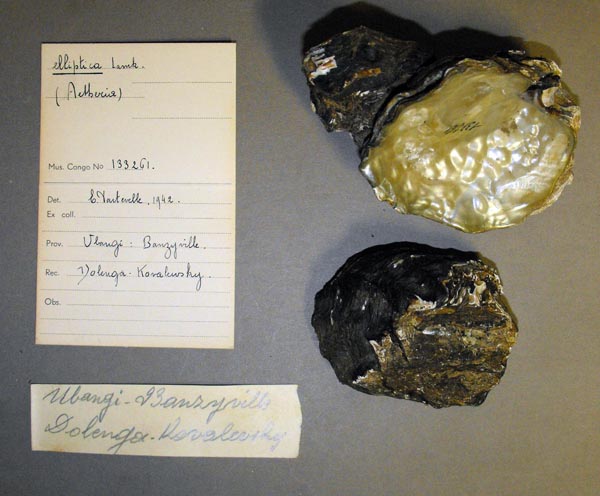 elliptica Lamk.
(Aetheria)
Mus. Congo No 133261.
Det. 1942.
Ex coll.
Prov. Ubangi: Banzyville.
Rec. Dolenga-Kovalewsky.
Obs.
Ubangi-Banzyville
Dolenga-Kovalewsky